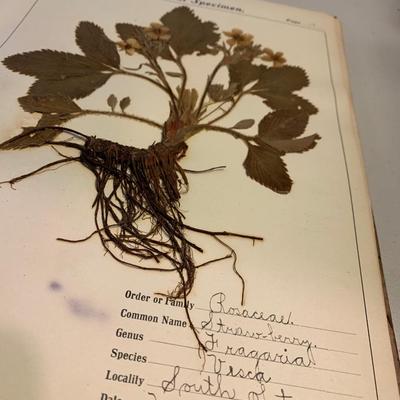 Specimen.
Page
Order or Family Rosaceae.
Common Name Strawberry.
Genus Fragaria
Species Vesca
Locality South of t
Date